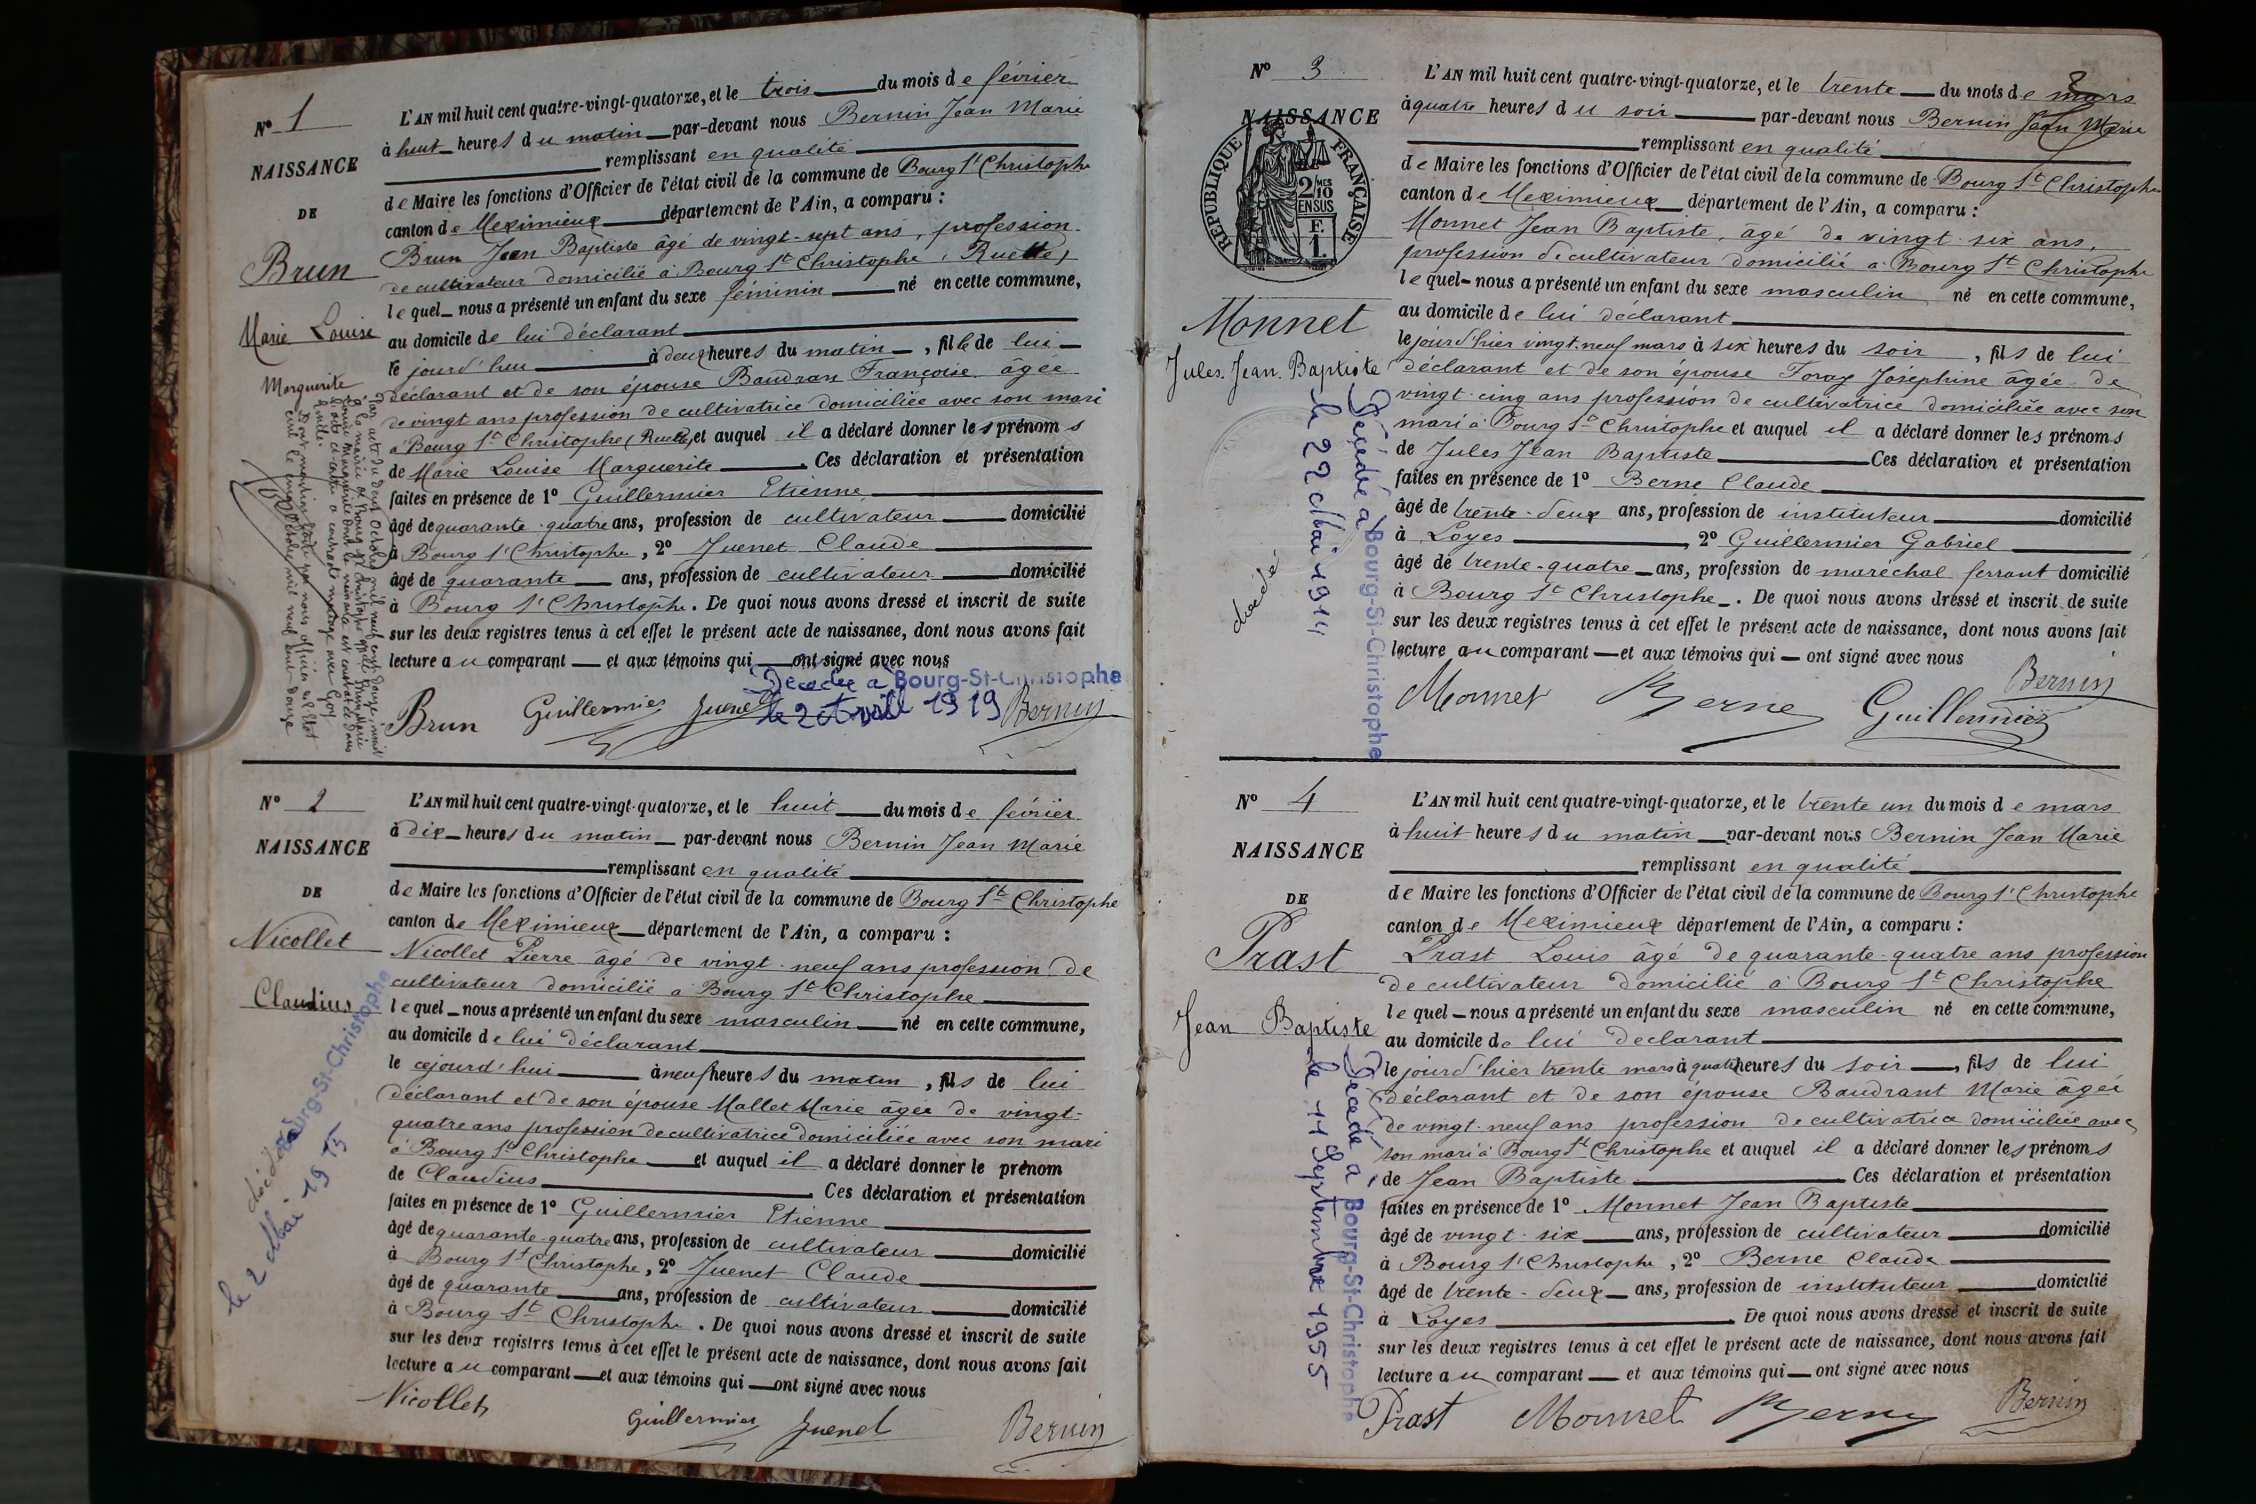 N° 1
NAISSANCE
DE
Brun
Marie Louise
Marguerite
L'AN mil huit cent quatre-vingt-quatorze, et le trois du mois de février
à huit heures du matin par-devant nous Bernin Jean Marie
remplissant en qualité
de Maire les fonctions d'Officier de l'état civil de la commune de Bourg St Christophe
canton de Meximieux département de l'Ain, a comparu :
Brun Jean Baptiste âgé de vingt-sept ans, profession
de cultivateur domicilié à Bourg St Christophe (Ruette)
lequel nous a présenté un enfant du sexe féminin né en cette commune,
au domicile de lui déclarant
le jourd'hui à deux heures du matin, fille de lui
déclarant et de son épouse Baudran Françoise âgée
de vingt ans profession de cultivatrice domiciliée avec son mari
à Bourg St Christophe (Ruette) et auquel il a déclaré donner les prénoms
de Marie Louise Marguerite. Ces déclaration et présentation
faites en présence de 1° Guillermier Etienne
âgé de quarante-quatre ans, profession de cultivateur domicilié
à Bourg St Christophe, 2° Juenet Claude
âgé de quarante ans, profession de cultivateur domicilié
à Bourg St Christophe. De quoi nous avons dressé et inscrit de suite
sur les deux registres tenus à cet effet le présent acte de naissance, dont nous avons fait
lecture au comparant et aux témoins qui ont signé avec nous
Décédée à Bourg-St-Christophe
le 2 Avril 1919
Brun Guillermier Juenet Bernin
Par acte du deux Octobre mil neuf cent douze, inscrit
à la mairie de Bourg St Christophe
Louise Marguerite dont la naissance est constatée dans
l'acte ci-contre a contracté mariage avec Goy
civil le mil neuf cent douze
N° 2
NAISSANCE
DE
Nicollet
Claudius
décédé à Bourg-St-Christophe
le 2 Mai 1975
L'AN mil huit cent quatre-vingt-quatorze, et le huit du mois de février
à dix heures du matin par-devant nous Bernin Jean Marie
remplissant en qualité
de Maire les fonctions d'Officier de l'état civil de la commune de Bourg St Christophe
canton de Meximieux département de l'Ain, a comparu :
Nicollet Pierre âgé de vingt-neuf ans profession de
cultivateur domicilié à Bourg St Christophe
lequel nous a présenté un enfant du sexe masculin né en cette commune,
au domicile de lui déclarant
le cejourd'hui à neuf heures du matin, fils de lui
déclarant et de son épouse Mallet Marie âgée de vingt-
quatre ans profession de cultivatrice domiciliée avec son mari
à Bourg St Christophe et auquel il a déclaré donner le prénom
de Claudius. Ces déclaration et présentation
faites en présence de 1° Guillermier Etienne
âgé de quarante-quatre ans, profession de cultivateur domicilié
à Bourg St Christophe, 2° Juenet Claude
âgé de quarante ans, profession de cultivateur domicilié
à Bourg St Christophe. De quoi nous avons dressé et inscrit de suite
sur les deux registres tenus à cet effet le présent acte de naissance, dont nous avons fait
lecture au comparant et aux témoins qui ont signé avec nous
Nicollet Guillermier Juenet Bernin
N° 3
NAISSANCE
RÉPUBLIQUE FRANÇAISE
2/10MES
EN SUS
F.
1.
Monnet
Jules Jean Baptiste
Décédé à Bourg-St-Christophe
le 22 Mai 1914
décédé
L'AN mil huit cent quatre-vingt-quatorze, et le trente du mois de mars
à quatre heures du soir par-devant nous Bernin Jean Marie
remplissant en qualité
de Maire les fonctions d'Officier de l'état civil de la commune de Bourg St Christophe
canton de Meximieux département de l'Ain, a comparu :
Monnet Jean Baptiste, âgé de vingt-six ans,
profession de cultivateur domicilié à Bourg St Christophe
lequel nous a présenté un enfant du sexe masculin né en cette commune,
au domicile de lui déclarant
le jourd'hier vingt-neuf mars à six heures du soir, fils de lui
déclarant et de son épouse Foray Joséphine âgée de
vingt-cinq ans profession de cultivatrice domiciliée avec son
mari à Bourg St Christophe et auquel il a déclaré donner les prénoms
de Jules Jean Baptiste Ces déclaration et présentation
faites en présence de 1° Berne Claude
âgé de trente-deux ans, profession de instituteur domicilié
à Loyes, 2° Guillermier Gabriel
âgé de trente-quatre ans, profession de maréchal ferrant domicilié
à Bourg St Christophe. De quoi nous avons dressé et inscrit de suite
sur les deux registres tenus à cet effet le présent acte de naissance, dont nous avons fait
lecture au comparant et aux témoins qui ont signé avec nous
Monnet Berne Guillermier Bernin
N° 4
NAISSANCE
DE
Prast
Jean Baptiste
Décédé à Bourg-St-Christophe
le 11 Septembre 1955
L'AN mil huit cent quatre-vingt-quatorze, et le trente un du mois de mars
à huit heures du matin par-devant nous Bernin Jean Marie
remplissant en qualité
de Maire les fonctions d'Officier de l'état civil de la commune de Bourg St Christophe
canton de Meximieux département de l'Ain, a comparu :
Prast Louis âgé de quarante-quatre ans profession
de cultivateur domicilié à Bourg St Christophe
lequel nous a présenté un enfant du sexe masculin né en cette commune,
au domicile de lui déclarant
le jourd'hier trente mars à quatre heures du soir, fils de lui
déclarant et de son épouse Baudrant Marie âgée
de vingt-neuf ans profession de cultivatrice domiciliée avec
son mari à Bourg St Christophe et auquel il a déclaré donner les prénoms
de Jean Baptiste Ces déclaration et présentation
faites en présence de 1° Monnet Jean Baptiste
âgé de vingt-six ans, profession de cultivateur domicilié
à Bourg St Christophe, 2° Berne Claude
âgé de trente-deux ans, profession de instituteur domicilié
à Loyes. De quoi nous avons dressé et inscrit de suite
sur les deux registres tenus à cet effet le présent acte de naissance, dont nous avons fait
lecture au comparant et aux témoins qui ont signé avec nous
Prast Monnet Berne Bernin